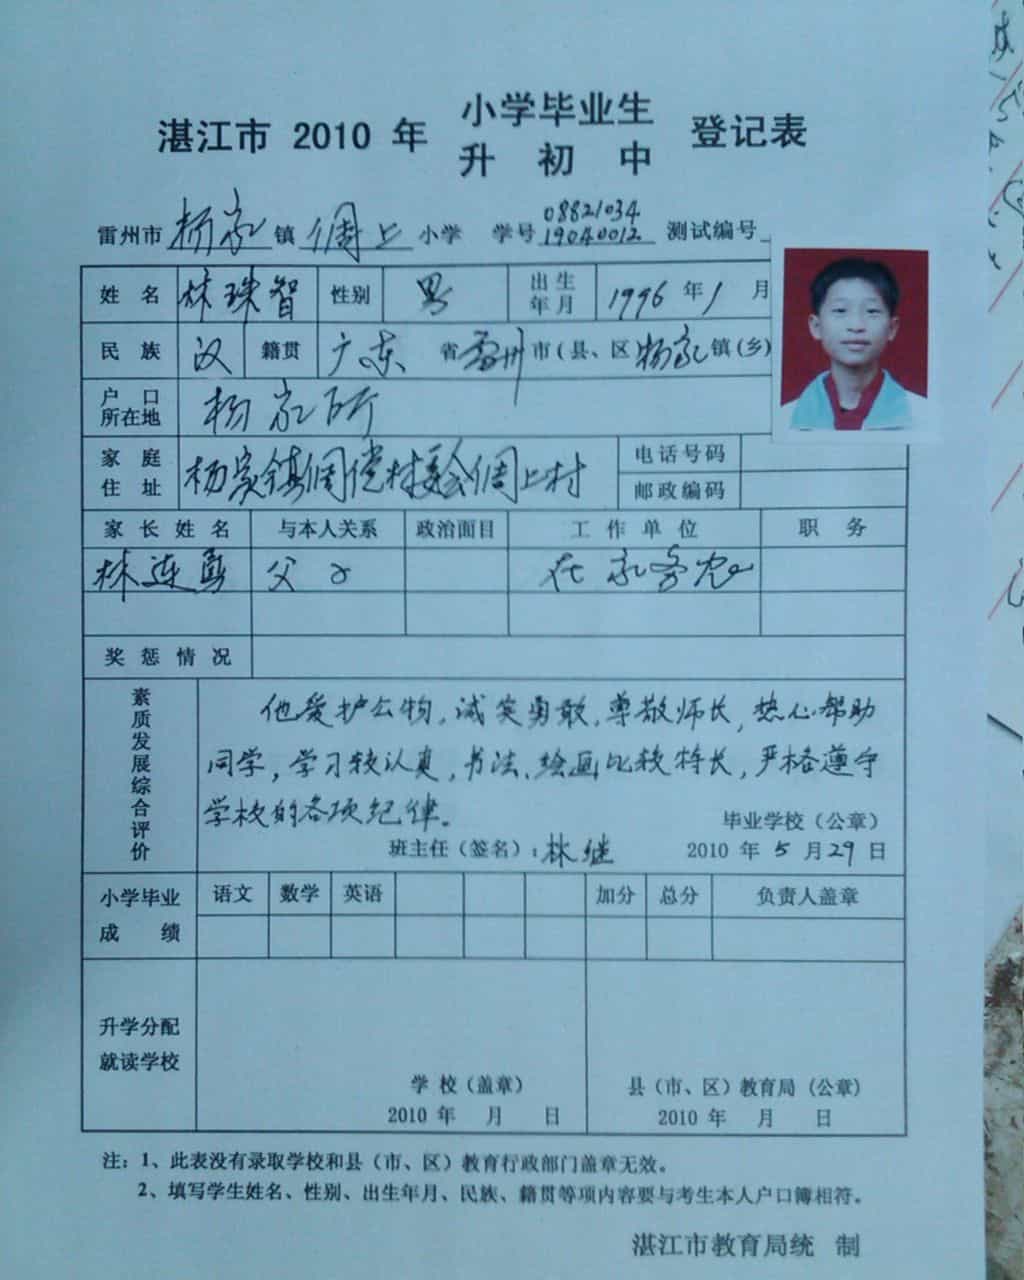 湛江市 2010 年 小学毕业生 登记表
升初中
雷州市 杨家 镇 倜上 小学 学号 08821034 19040012 测试编号
姓名 林珠智 性别 男 出生年月 1996 年 1 月
民族 汉 籍贯 广东 省 雷州 市(县、区 杨家 镇(乡)
户口所在地 杨家所
家庭住址 杨家镇倜 村委会倜上村 电话号码
邮政编码
家长姓名 与本人关系 政治面目 工作单位 职务
林连勇 父子 在家务农
奖惩情况
素质发展综合评价
他爱护公物,诚实勇敢,尊敬师长,热心帮助
同学,学习较认真,书法、绘画比较特长,严格遵守
学校的各项纪律。
毕业学校(公章)
班主任(签名):林继 2010 年 5 月 29 日
小学毕业 语文 数学 英语 加分 总分 负责人盖章
成绩
升学分配
就读学校
学校(盖章) 县(市、区)教育局(公章)
2010 年 月 日 2010 年 月 日
注:1、此表没有录取学校和县(市、区)教育行政部门盖章无效。
2、填写学生姓名、性别、出生年月、民族、籍贯等项内容要与考生本人户口簿相符。
湛江市教育局统 制